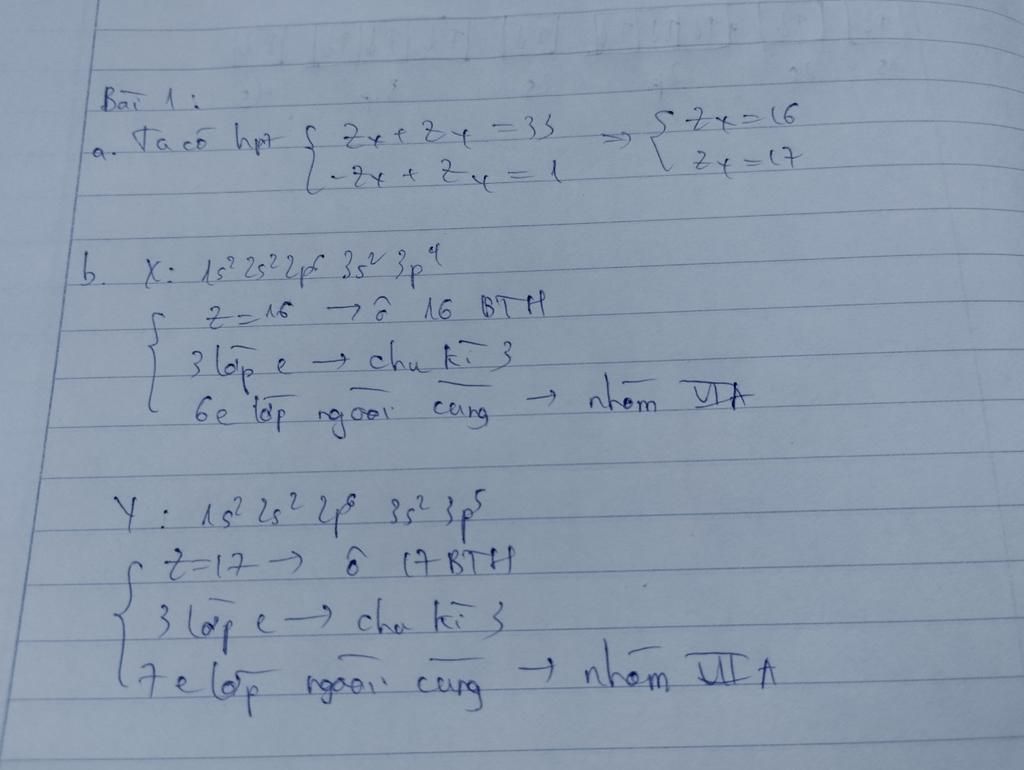 Bài 1:
a. Ta có hpt { Zx + Zy = 33 => { Zx = 16
{ -Zx + Zy = 1 { Zy = 17
b. X: 1s² 2s² 2p⁶ 3s² 3p⁴
{ Z = 16 → ô 16 BTH
3 lớp e → chu kì 3
6e lớp ngoài cùng → nhóm VIA
Y: 1s² 2s² 2p⁶ 3s² 3p⁵
{ Z = 17 → ô 17 BTH
3 lớp e → chu kì 3
7e lớp ngoài cùng → nhóm VIIA